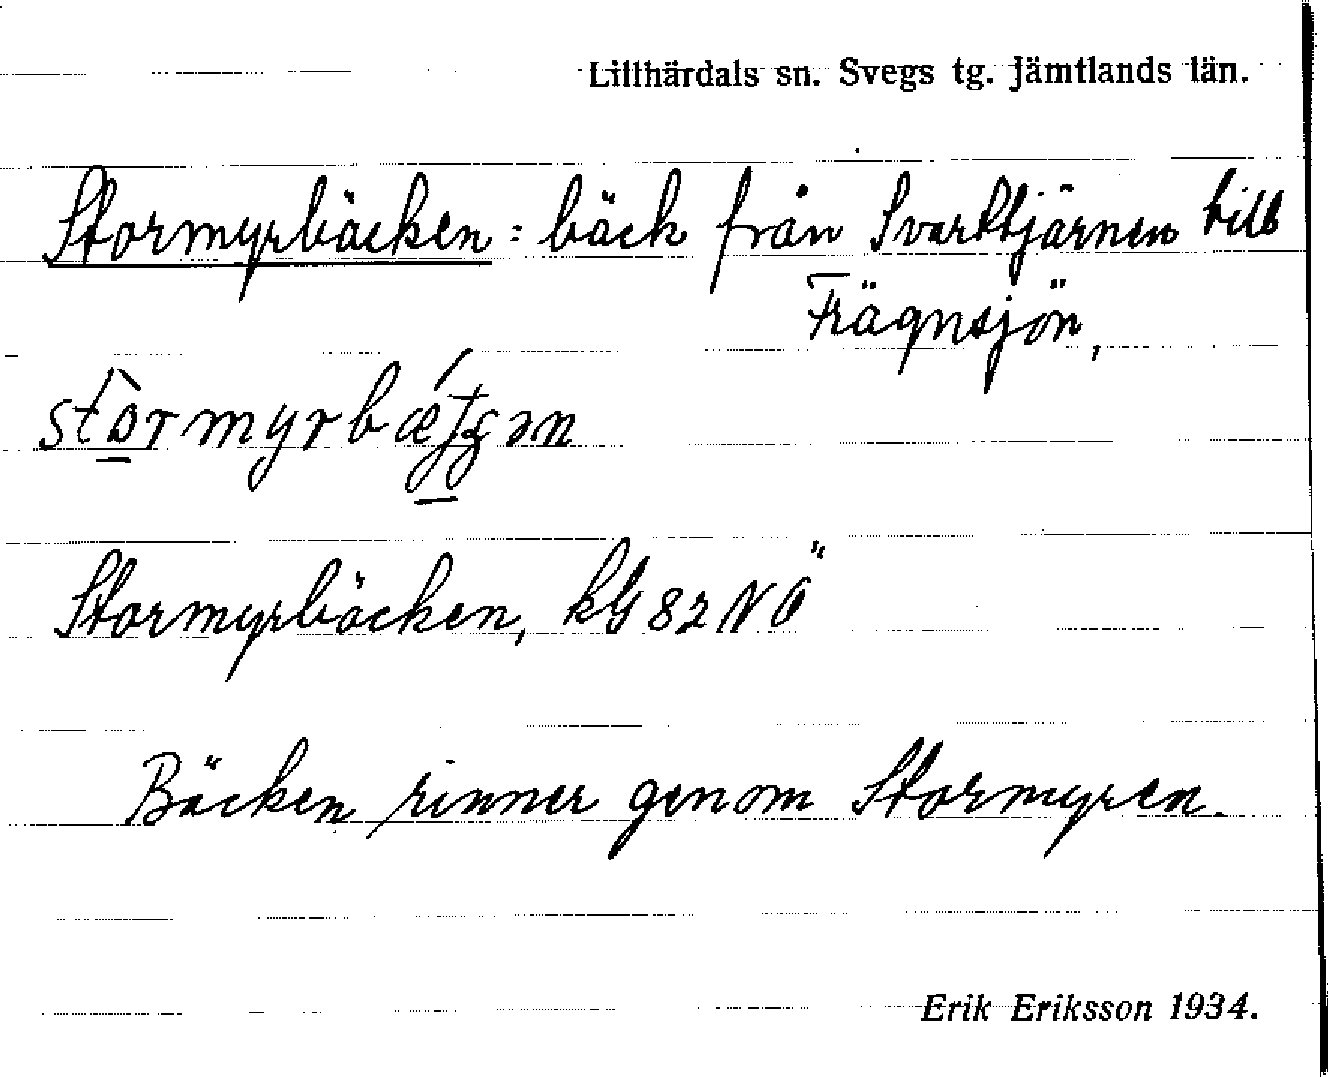 Lillhärdals sn. Svegs tg. Jämtlands län.
Stormyrbäcken : bäck från Svarttjärnen till
Frägnsjön,
Stormyrbäcken, kG 82 NÖ
Bäcken rinner genom Stormyren.
Erik Eriksson 1934.